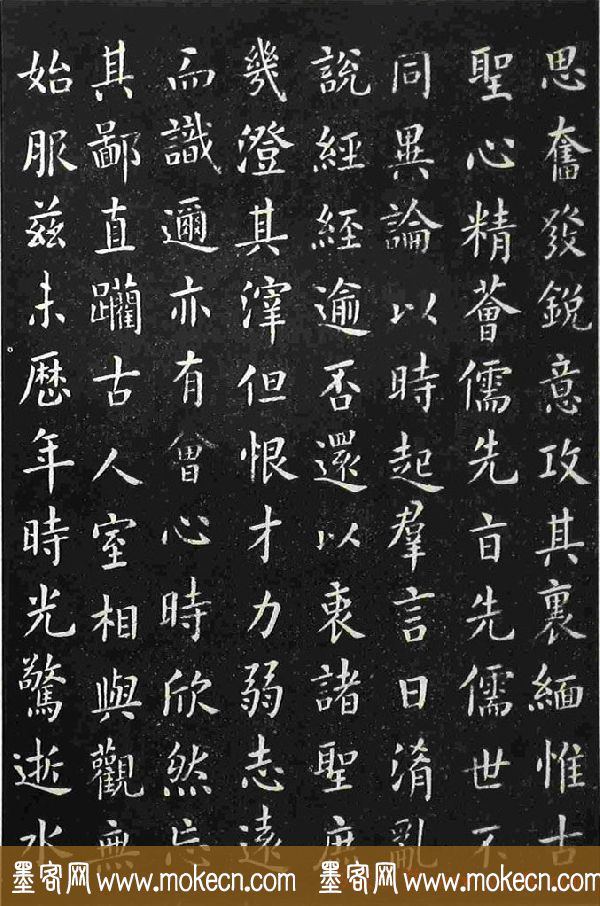 思奮發銳意攻其裏緬惟古
聖心精薈儒先盲先儒世不
同異論以時起羣言日淆亂
說經經逾否還以衷諸聖庶
幾澄其滓但恨才力弱志遠
而識邇亦有會心時欣然忘
其鄙直躪古人室相與觀無
始服茲未歷年時光驚逝水
墨客网 www.mokecn.com 墨客网 www.mokecn.com